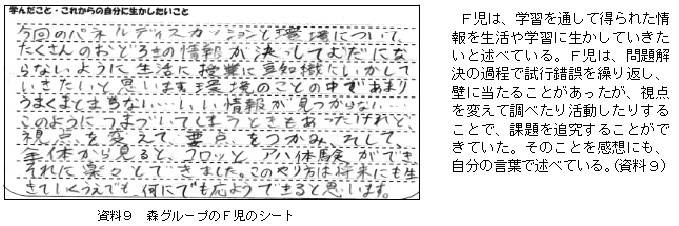 学んだこと・これからの自分に生かしたいこと
今回のパネルディスカッションと環境について、
たくさんのおどろきの情報が決してむだにな
らないように生活に授業に豆知識にいかして
いきたいと思います。環境のことの中であまり
うまくまとまらない…いい情報が見つからない…
このようにつまづいてしまうときもあったけれど、
視点を変えて要点をつかみ、
全体から見ると、コロッとアハ体験ができ
それに楽々とできました。このやり方は将来にも生
きていくうえでも何にでも応ようできると思います。
資料9 森グループのF児のシート
F児は、学習を通して得られた情
報を生活や学習に生かしていきた
いと述べている。F児は、問題解
決の過程で試行錯誤を繰り返し、
壁に当たることがあったが、視点
を変えて調べたり活動したりする
ことで、課題を追究することがで
きていた。そのことを感想にも、
自分の言葉で述べている。(資料9)